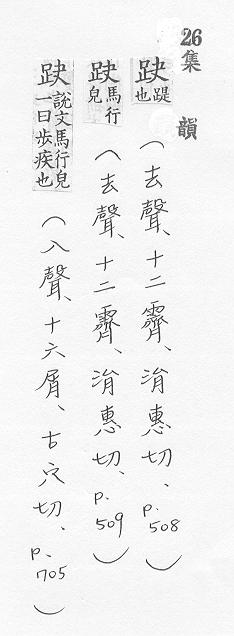 26集韻
趹踶也（去聲、十二霽、涓惠切、p.508）
趹馬行皃（去聲、十二霽、涓惠切、p.509）
趹說文馬行皃一曰步疾也（入聲、十六屑、古穴切、p.705）